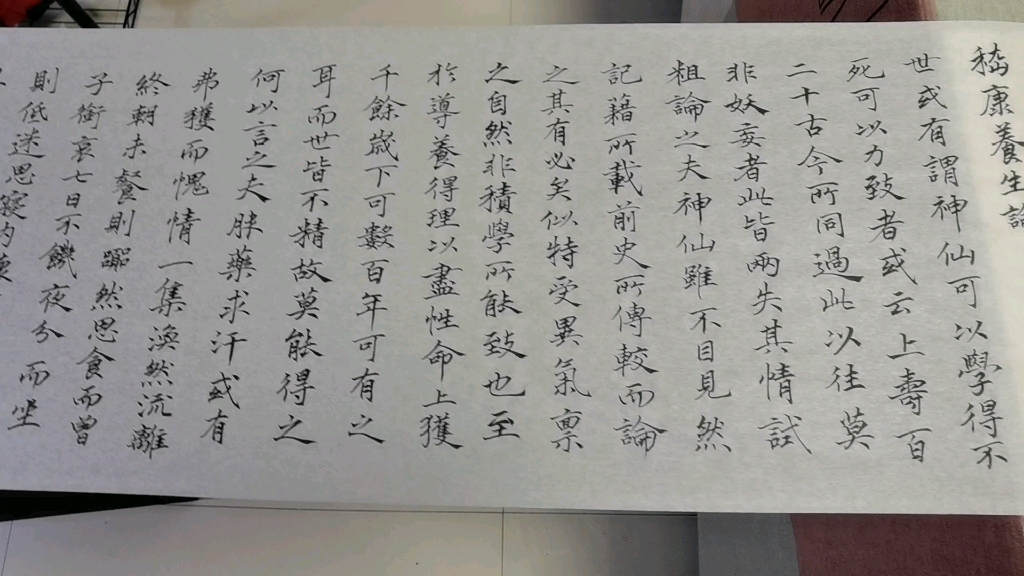 嵇康養生論
世或有謂神仙可以學得不
死可以力致者或云上壽百
二十古今所同過此以往莫
非妖妄者此皆兩失其情試
粗論之夫神仙雖不目見然
記藉所載前史所傳較而論
之其有必矣似特受異氣禀
之自然非積學所能致也至
於導養得理以盡性命上獲
千餘歲下可數百年可有之
耳而世皆不精故莫能得之
何以言之夫服藥求汗或有
弗獲而愧情一集渙然流離
終朝未餐則嚻然思食而曾
子銜哀七日不饑夜分而坐
則低迷思寢內